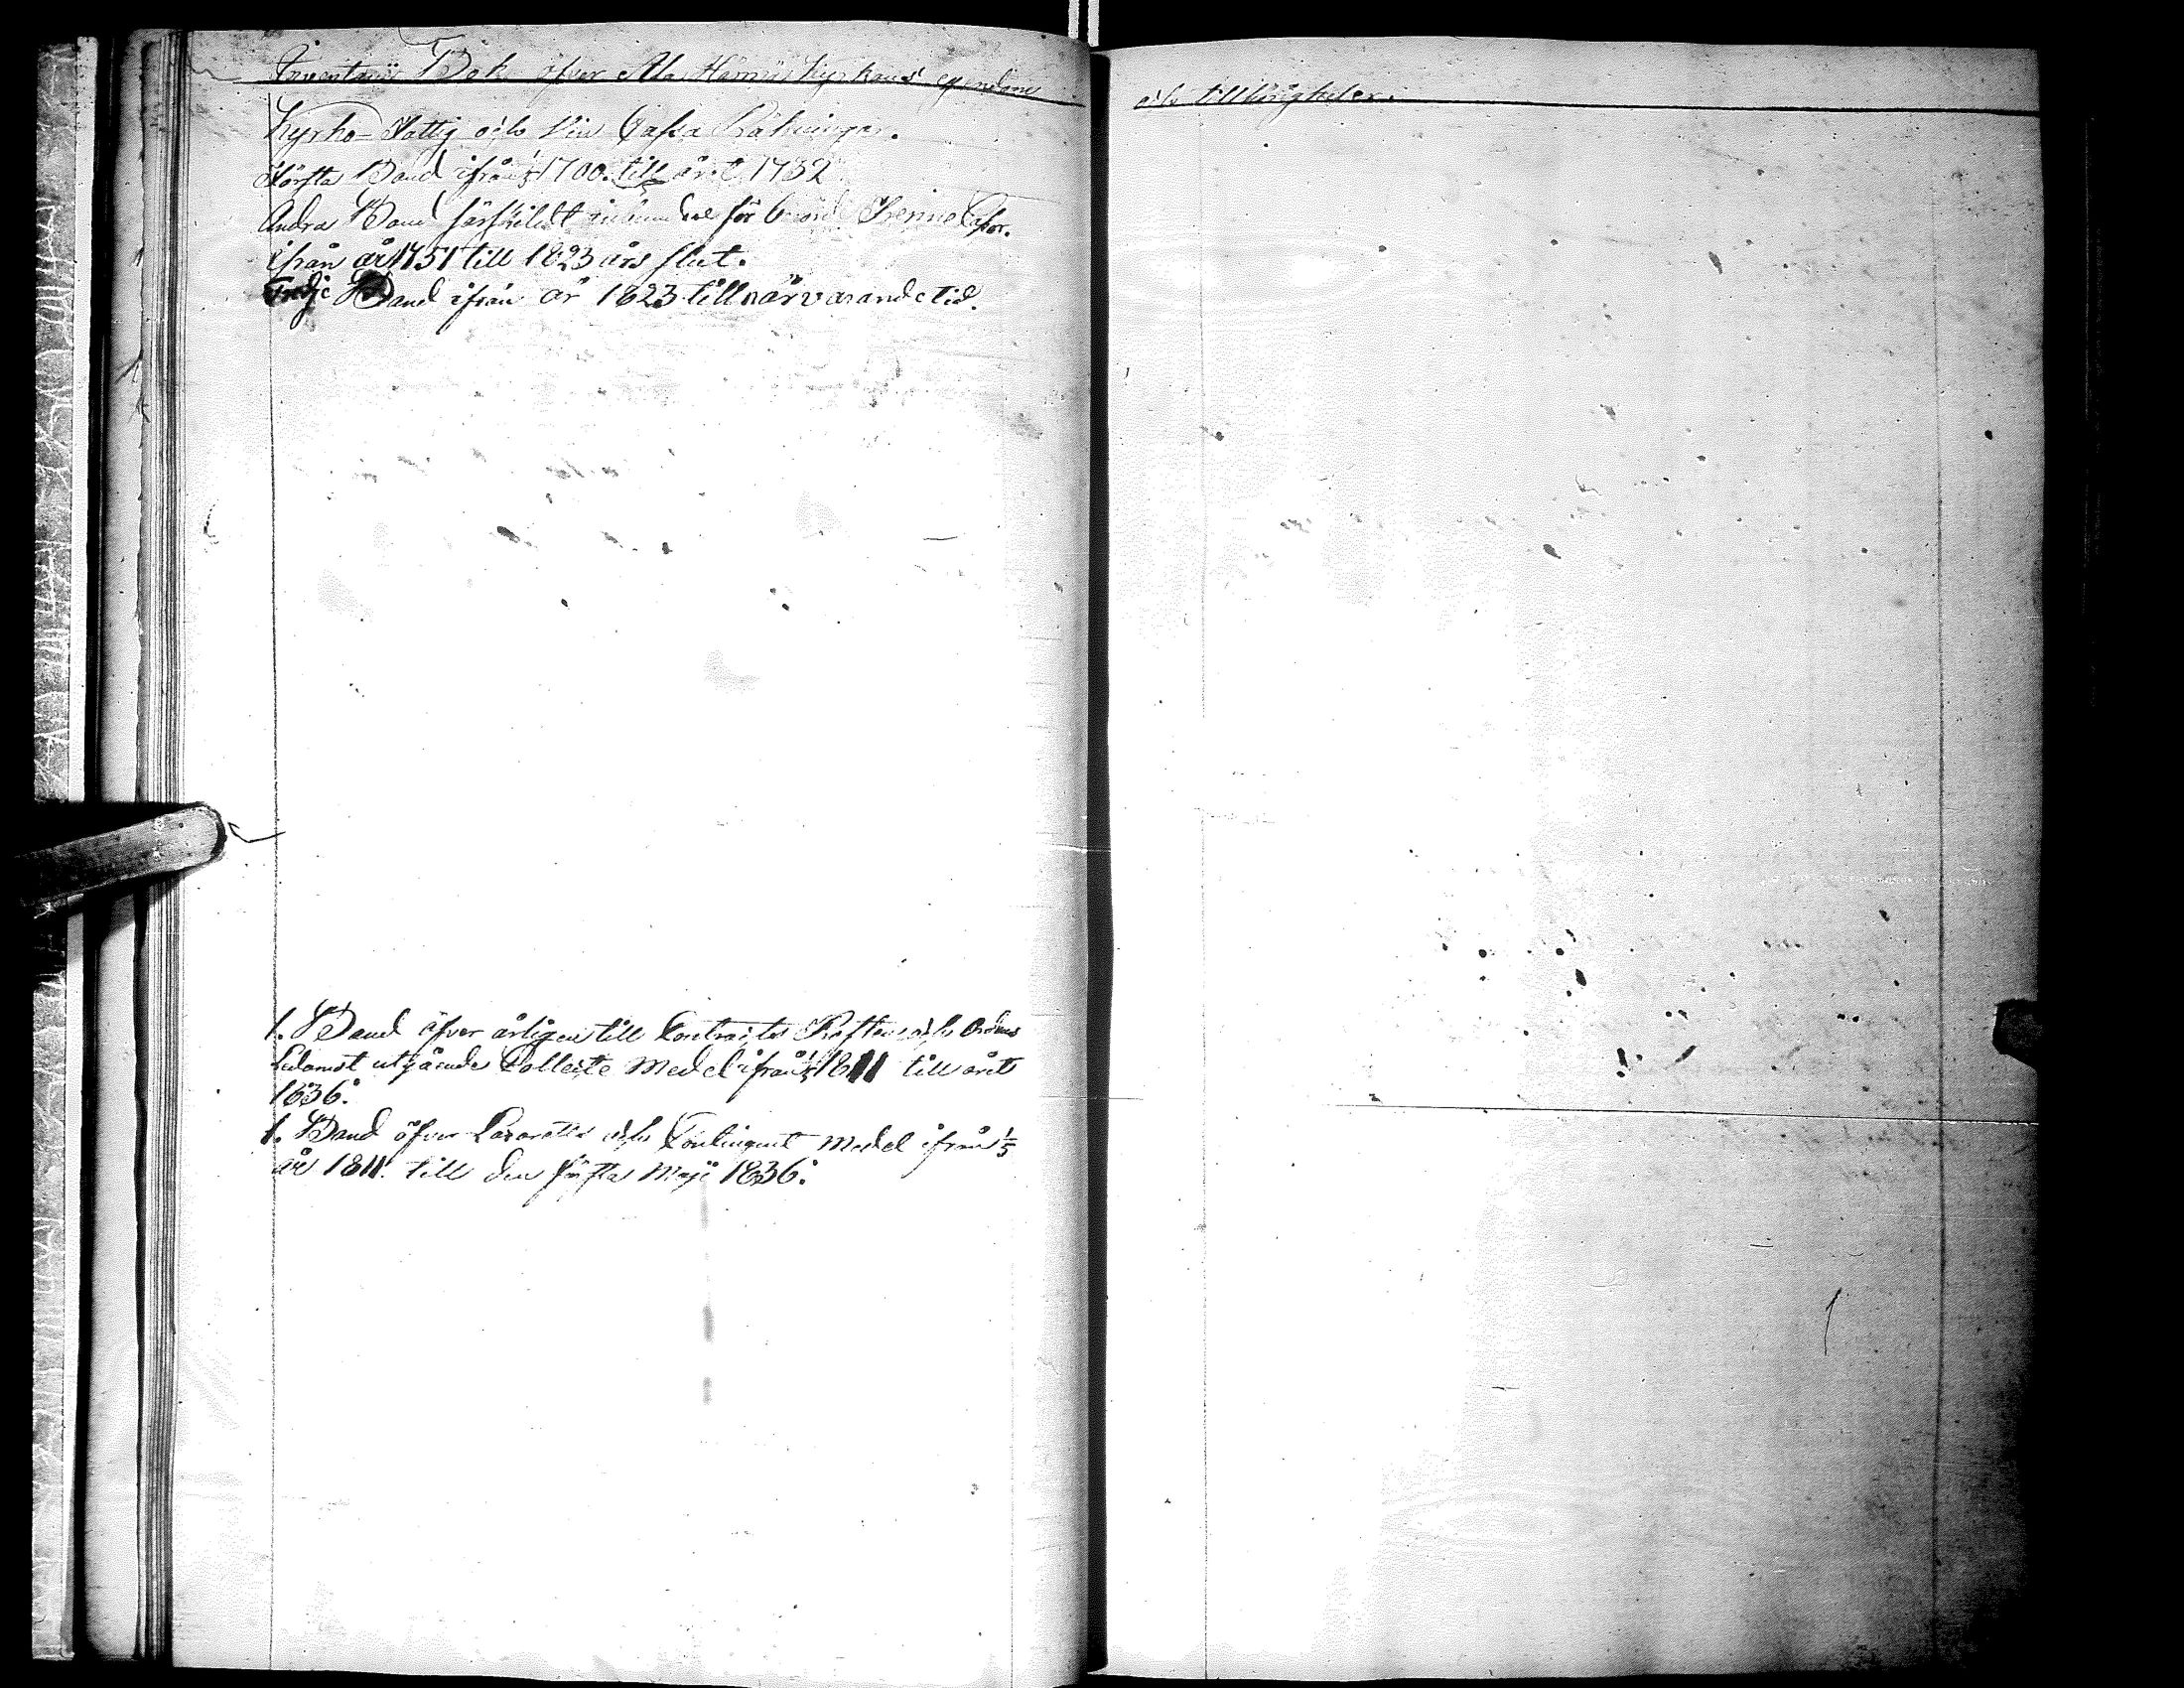 Inventarii Bok öfver Kyrkans egendom
och tillhörigheter.
Kyrko- Fattig och Vin Cassa Räkningar.
Första Band ifrån 1700. till året 1732
Andra Band särskildt för Trenne Cassor.
ifrån år 1751 till 1823 års slut.
Tredje Band ifrån år 1823 till närvarande tid.
1. Band öfver årligen till Contracts Prosten och Ordens
Ledamot utgående Collecte Medel ifrån 1811 till året
1836.
1. Band öfver Lazaretts och Contingent Medel ifrån 1/5
år 1811. till den första Maji 1836.